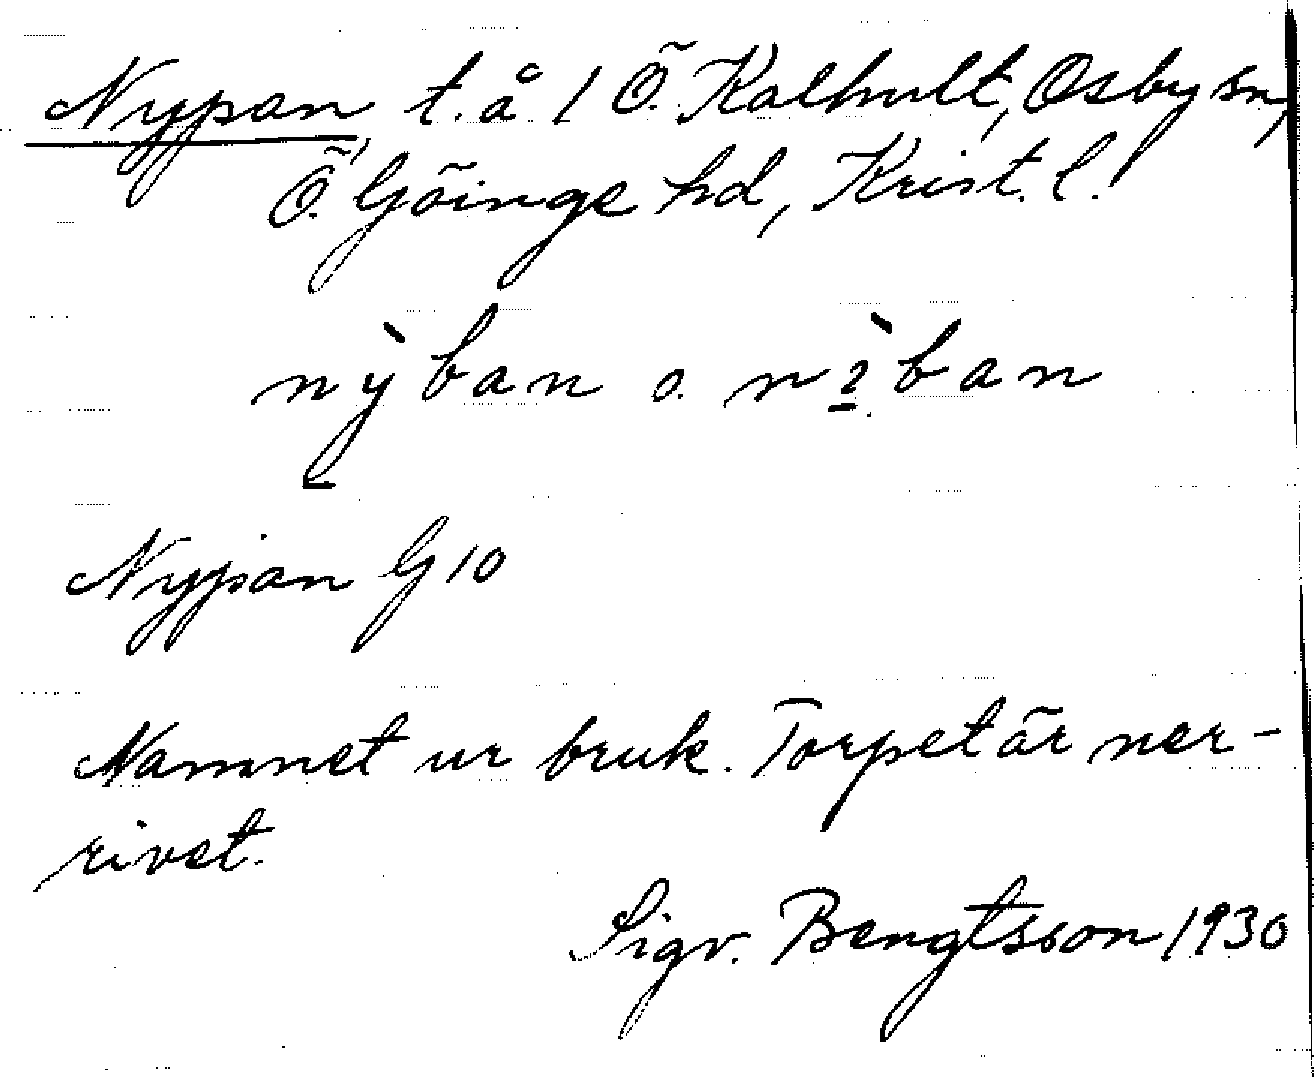 Nypan, t. å 1 Ö. Kalhult, Osby sn,
Ö. Göinge hd, Krist. l.
nỳban o. nì̱ban
Nypan G 10
Namnet ur bruk. Torpet är ner-
rivet.
Sigv. Bengtsson 1930